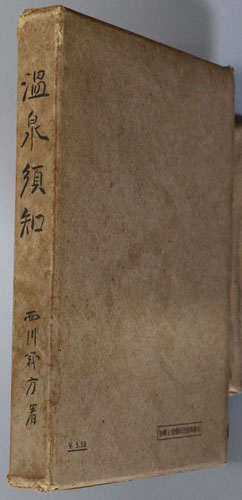 温泉須知
西川義方著
¥ 5.50